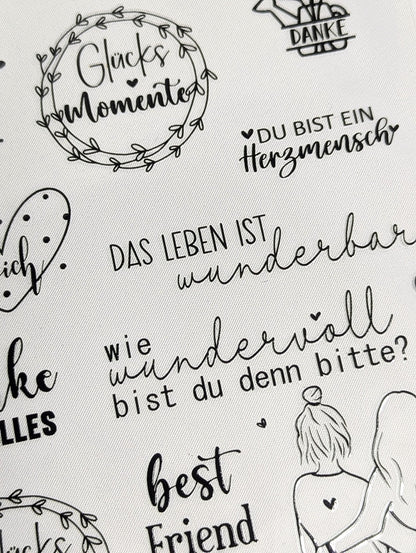 Glücks
Momente
DANKE
DU BIST EIN
Herzmensch
ich
DAS LEBEN IST
wunderbar
wie
wundervoll
bist du denn bitte?
ke
LLES
best
Friend
Glücks